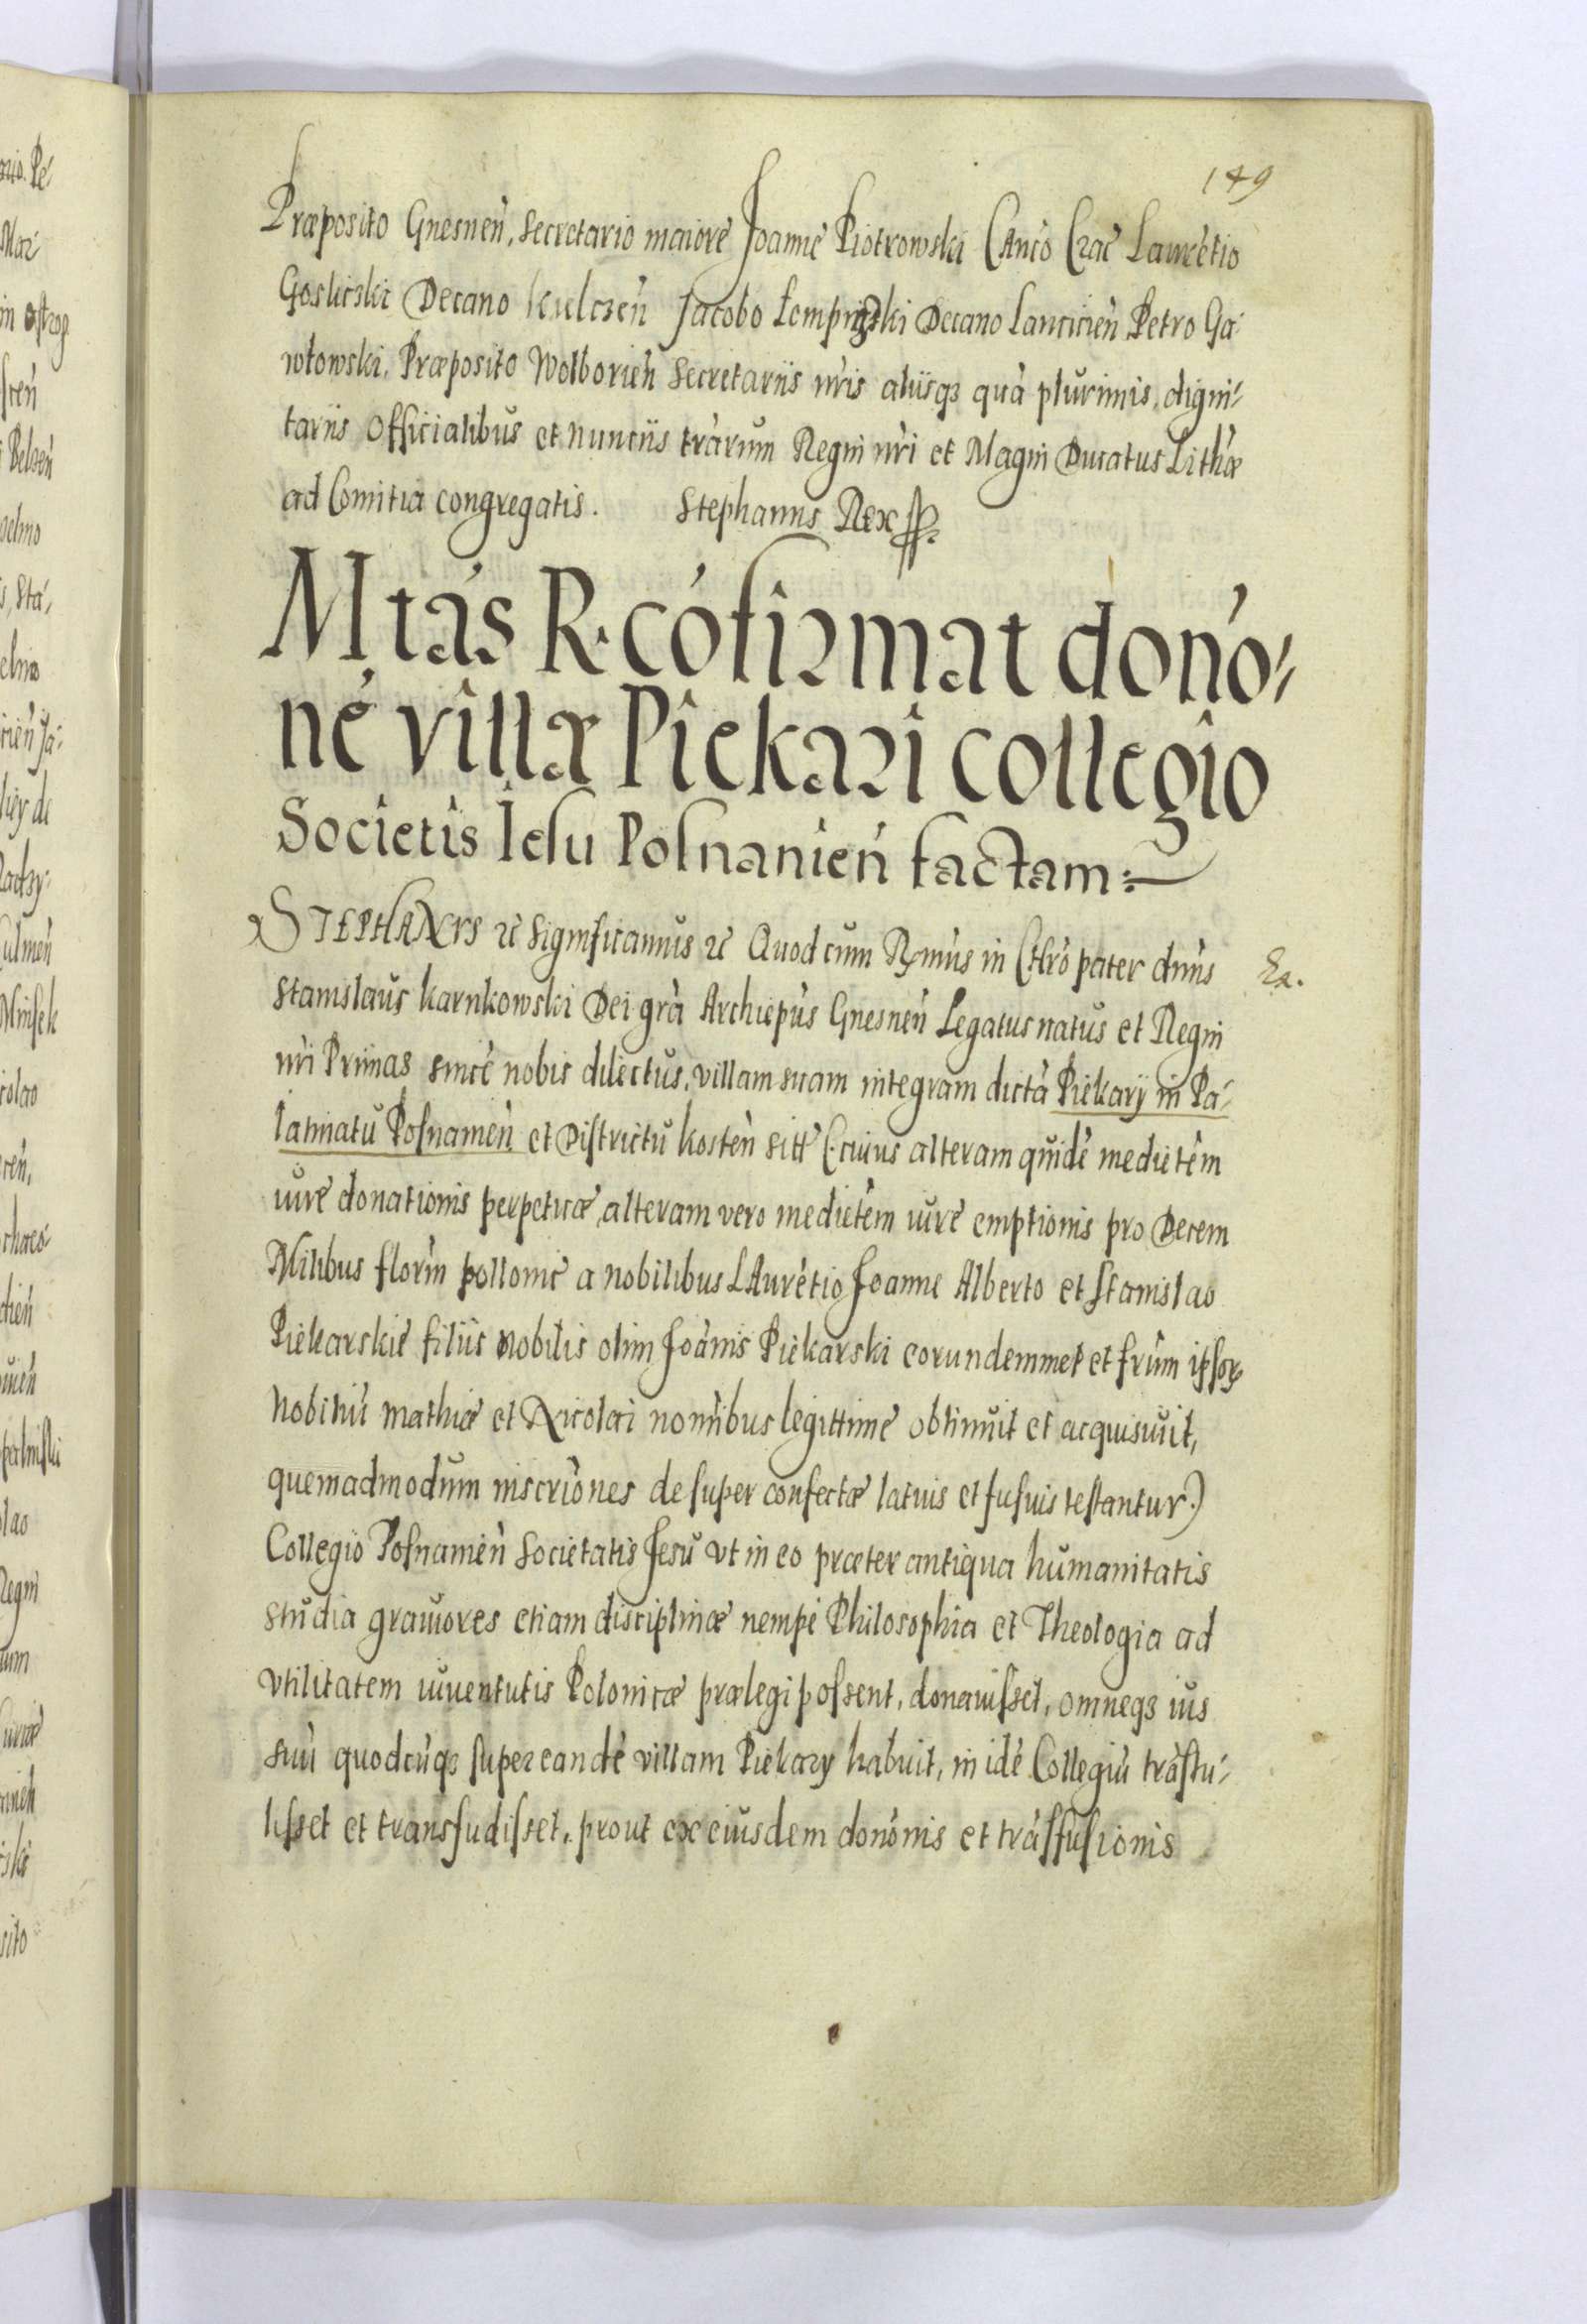 149
Præposito Gnesneń, Secretario maiore Joanne Piotrowski Canco Crac Lauretio
Goslicski Decano Kielczeń Jacobo Łempicski Decano Lancicień Petro Ga-
włowski, Præposito Wolborień Secretariis nris aliisq3 quà plurimis, digni-
tariis Officialibus et nunciis trarum Regni nri et Magni Ducatus Lithæ
ad Comitia congregatis. Stephanus Rex
Mtas R. cofirmat dono-
né villæ Piekari collegio
Societis Iesu Posnanień factam:
STEPHANVS &c Significamus &c Quod cum Rmus in Chro pater dnus
Ex.
Stanislaus Karnkowski Dei gra Archiepus Gnesneń Legatus natus et Regni
nri Primas sincè nobis dilectus, villam suam integram dictà Piekary in Pa-
latinatu Posnanień et Districtu Kosteń sitt (cuius alteram quidè medietèm
iure donationis perpetuæ, alteram vero medietèm iure emptionis pro Decem
Milibus florin polloniè a nobilibus Laurètio Joanne Alberto et Stanislao
Piekarskie filiis nobilis olim Joànis Piekarski eorundemmet et frum ipsor
Nobiliù Mathiæ et Nicolai nomìbus legittimè obtinuit et acquisiuit,
quemadmodum inscriònes desuper confectæ latius et fusius testantur.)
Collegio Posnanień Societatis Jesu vt in eo præter antiqua humanitatis
studia grauiores etiam disciplinæ nempè Philosophia et Theologia ad
vtilitatem iuuentutis Polonicæ prælegi possent, donauisset, omneq3 ius
suù quodcùq3 super eandè villam Piekary habuit, in idè Collegiù tràstu-
lisset et transfudisset, prout ex eiusdem donònis et tràsfusionis